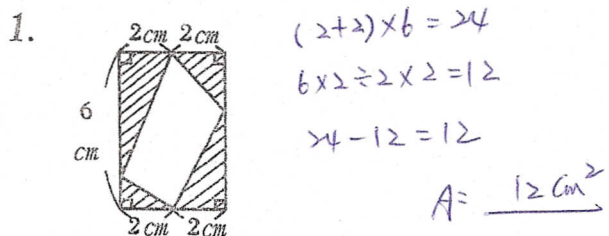 1.
2cm 2cm
6
cm
2cm 2cm
(2+2)×6=24
6×2÷2×2=12
24-12=12
A= 12cm²